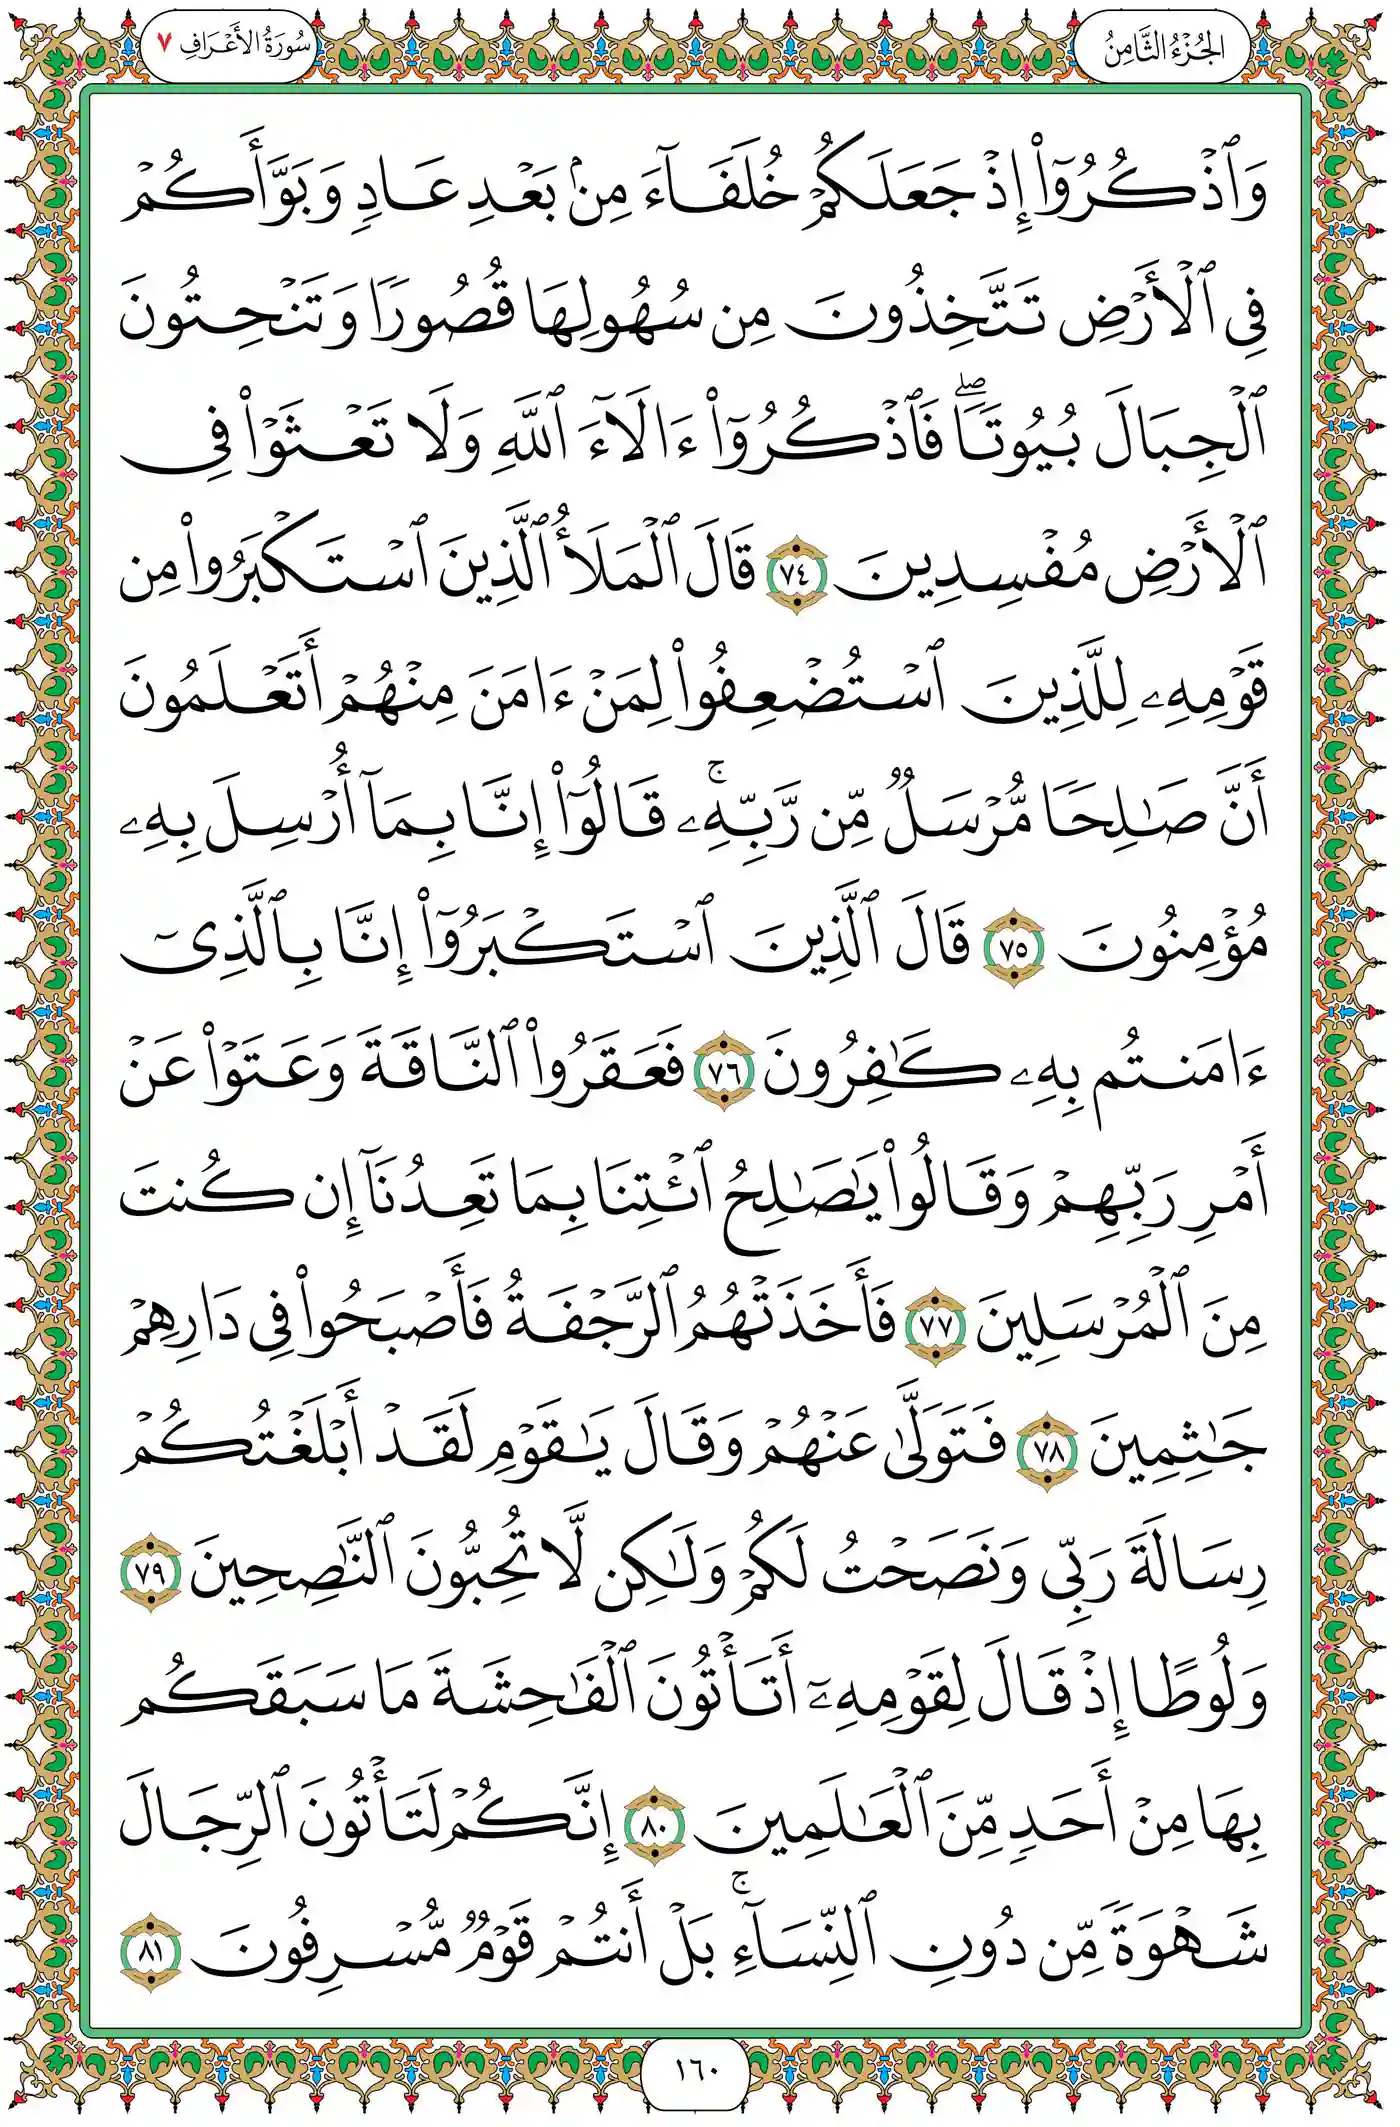 الجُزْءُ الثَّامِنُ
سُورَةُ الأَعْرَافِ ٧
وَٱذۡكُرُوٓاْ إِذۡ جَعَلَكُمۡ خُلَفَآءَ مِنۢ بَعۡدِ عَادٖ وَبَوَّأَكُمۡ
فِي ٱلۡأَرۡضِ تَتَّخِذُونَ مِن سُهُولِهَا قُصُورٗا وَتَنۡحِتُونَ
ٱلۡجِبَالَ بُيُوتٗاۖ فَٱذۡكُرُوٓاْ ءَالَآءَ ٱللَّهِ وَلَا تَعۡثَوۡاْ فِي
ٱلۡأَرۡضِ مُفۡسِدِينَ ٧٤ قَالَ ٱلۡمَلَأُ ٱلَّذِينَ ٱسۡتَكۡبَرُواْ مِن
قَوۡمِهِۦ لِلَّذِينَ ٱسۡتُضۡعِفُواْ لِمَنۡ ءَامَنَ مِنۡهُمۡ أَتَعۡلَمُونَ
أَنَّ صَٰلِحٗا مُّرۡسَلٞ مِّن رَّبِّهِۦۚ قَالُوٓاْ إِنَّا بِمَآ أُرۡسِلَ بِهِۦ
مُؤۡمِنُونَ ٧٥ قَالَ ٱلَّذِينَ ٱسۡتَكۡبَرُوٓاْ إِنَّا بِٱلَّذِيٓ
ءَامَنتُم بِهِۦ كَٰفِرُونَ ٧٦ فَعَقَرُواْ ٱلنَّاقَةَ وَعَتَوۡاْ عَنۡ
أَمۡرِ رَبِّهِمۡ وَقَالُواْ يَٰصَٰلِحُ ٱئۡتِنَا بِمَا تَعِدُنَآ إِن كُنتَ
مِنَ ٱلۡمُرۡسَلِينَ ٧٧ فَأَخَذَتۡهُمُ ٱلرَّجۡفَةُ فَأَصۡبَحُواْ فِي دَارِهِمۡ
جَٰثِمِينَ ٧٨ فَتَوَلَّىٰ عَنۡهُمۡ وَقَالَ يَٰقَوۡمِ لَقَدۡ أَبۡلَغۡتُكُمۡ
رِسَالَةَ رَبِّي وَنَصَحۡتُ لَكُمۡ وَلَٰكِن لَّا تُحِبُّونَ ٱلنَّٰصِحِينَ ٧٩
وَلُوطًا إِذۡ قَالَ لِقَوۡمِهِۦٓ أَتَأۡتُونَ ٱلۡفَٰحِشَةَ مَا سَبَقَكُم
بِهَا مِنۡ أَحَدٖ مِّنَ ٱلۡعَٰلَمِينَ ٨٠ إِنَّكُمۡ لَتَأۡتُونَ ٱلرِّجَالَ
شَهۡوَةٗ مِّن دُونِ ٱلنِّسَآءِۚ بَلۡ أَنتُمۡ قَوۡمٞ مُّسۡرِفُونَ ٨١
١٦٠